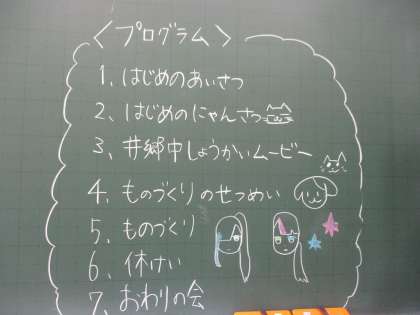 〈プログラム〉
1、はじめのあいさつ
2、はじめのにゃんさつ
3、井郷中しょうかいムービー
4、ものづくりのせつめい
5、ものづくり
6、休けい
7、おわりの会